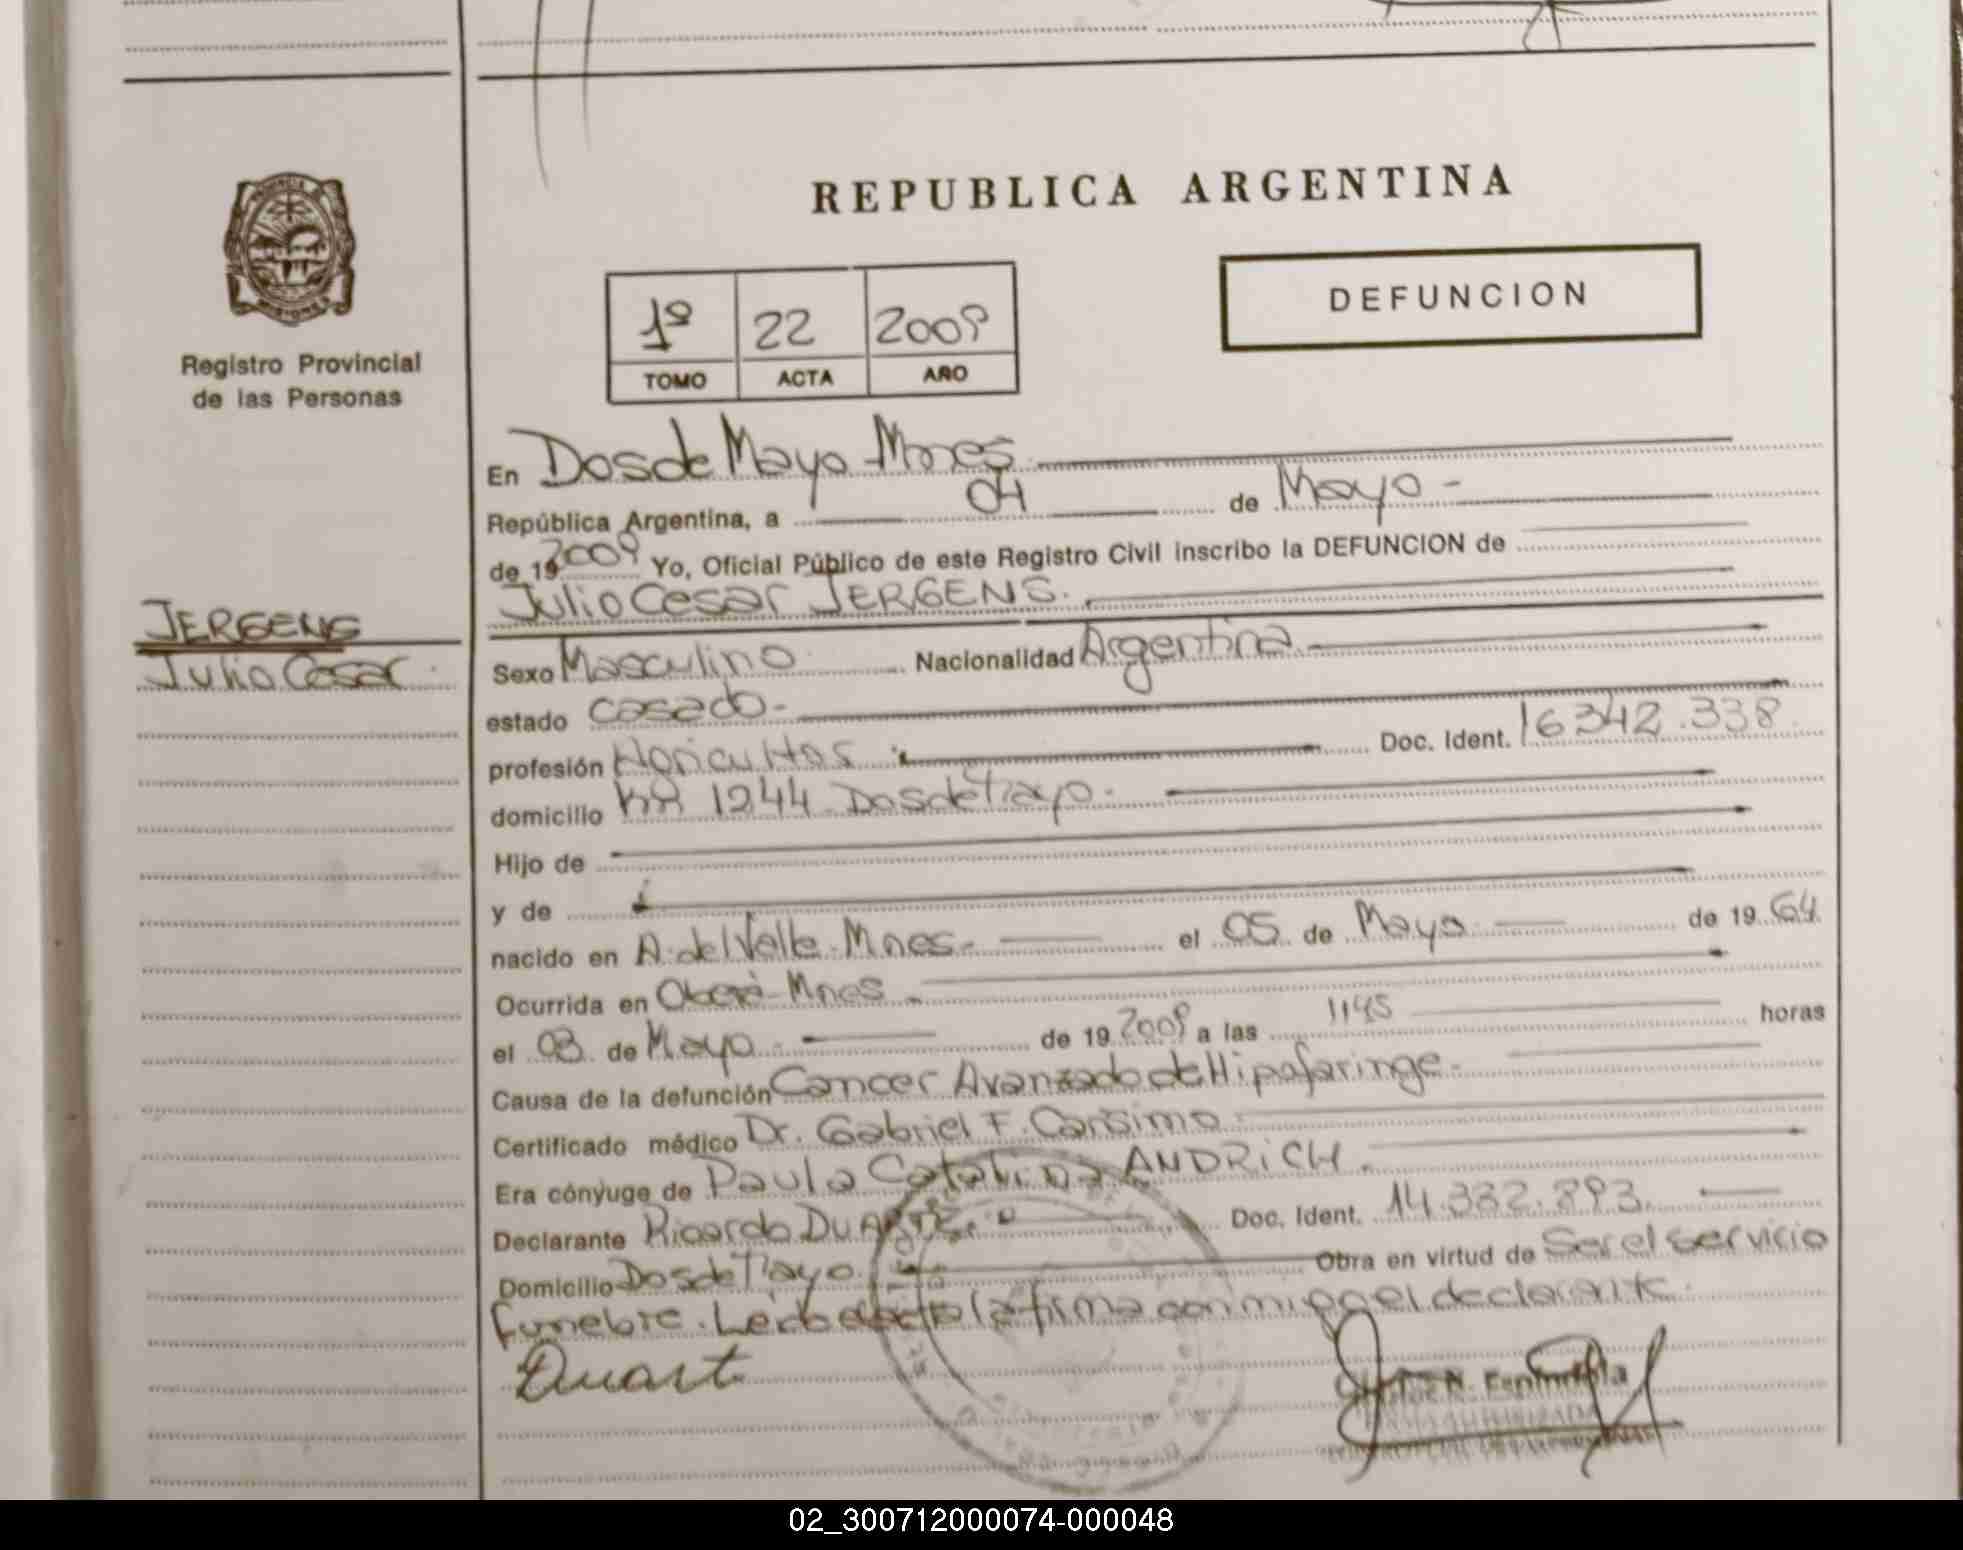 REPUBLICA ARGENTINA
DEFUNCION
1º 22 2009
TOMO ACTA AÑO
Registro Provincial
de las Personas
JERGENS
Julio Cesar
En Dos de Mayo Mnes
República Argentina, a 04 de Mayo -
de 19 2009 Yo, Oficial Público de este Registro Civil inscribo la DEFUNCION de
Julio Cesar JERGENS.
Sexo Masculino Nacionalidad Argentina
estado casado -
profesión Agricultor Doc. Ident. 16342.338
domicilio km 1244 Dos de Mayo.
Hijo de
y de
nacido en A. del Valle Mnes - el 05 de Mayo de 19 64
Ocurrida en Oberá - Mnes
el 03 de Mayo de 19 2009 a las 1145 horas
Causa de la defunción Cancer Avanzado de Hipofaringe.
Certificado médico Dr. Gabriel F.
Era cónyuge de Paula Catalina ANDRICH.
Declarante Ricardo DUARTE. Doc. Ident. 14.332.893
Domicilio Dos de Mayo Obra en virtud de Ser el servicio
funebre. Leida el acta la firma conmigo el declarante.
Duart
02_300712000074-000048